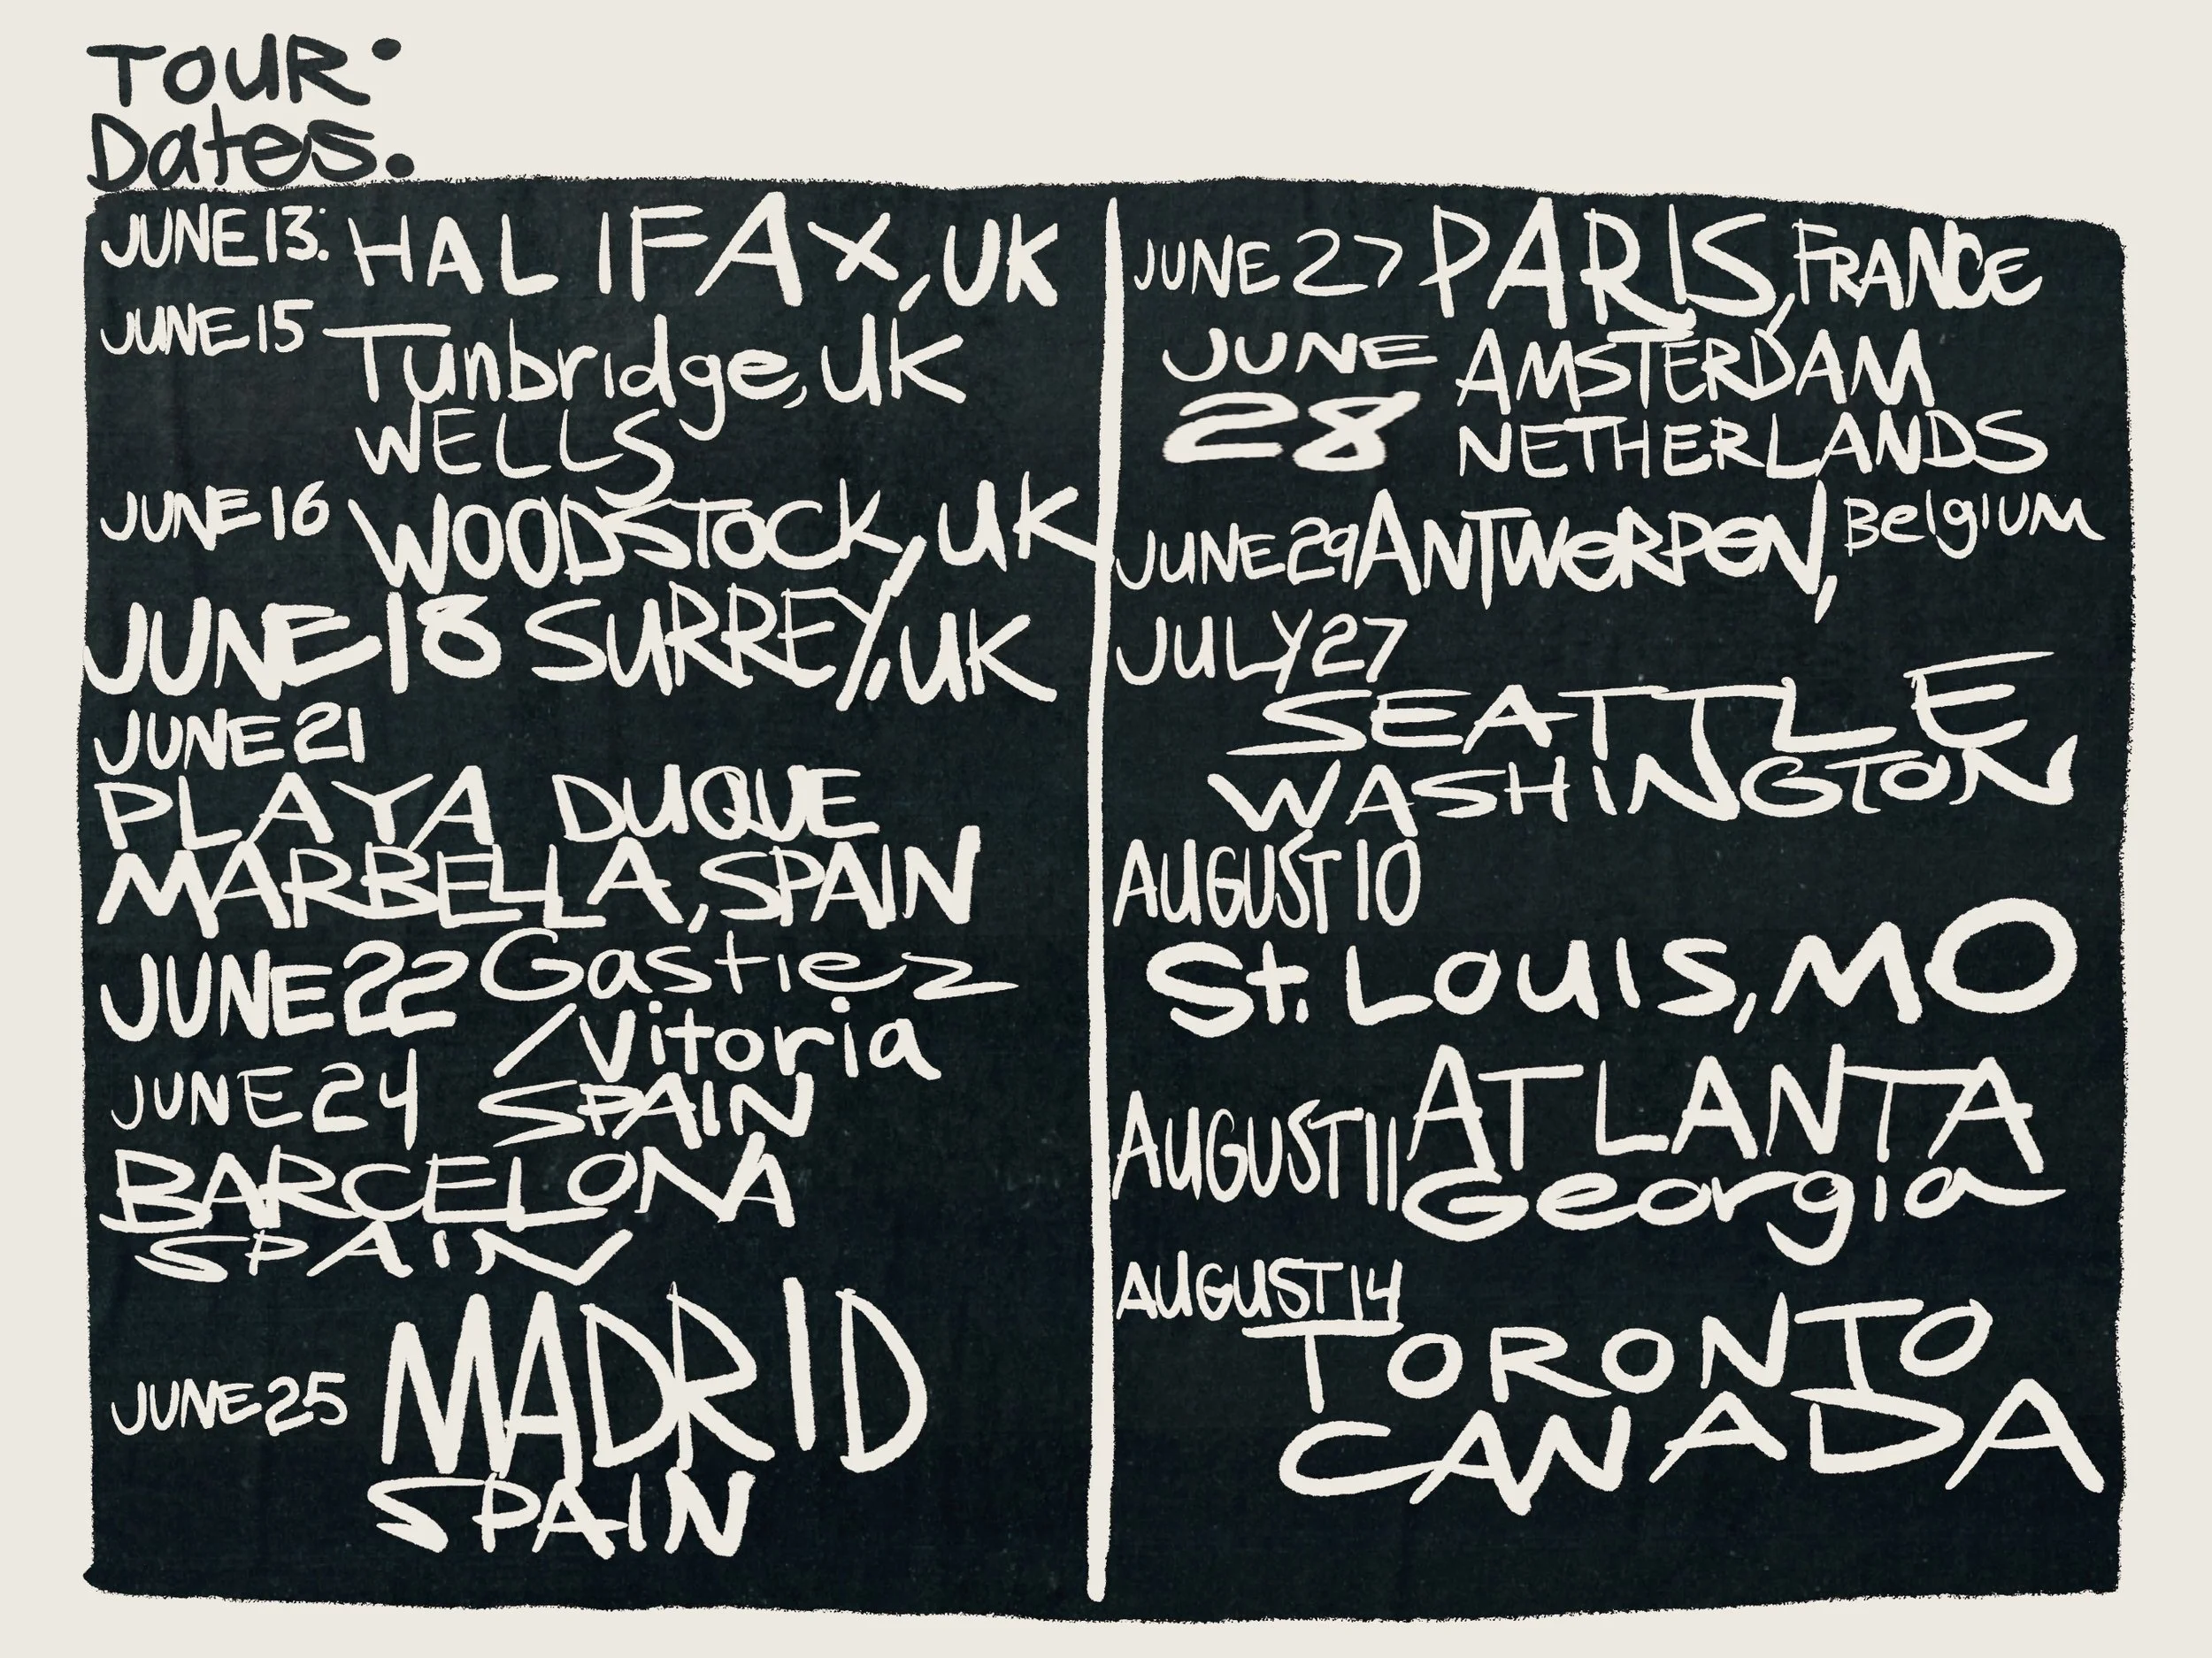 TOUR:
Dates.
JUNE 13: HALIFAX, UK
JUNE 15 Tunbridge, UK
WELLS
JUNE 16 WOODSTOCK, UK
JUNE 18 SURREY, UK
JUNE 21
PLAYA DUQUE
MARBELLA, SPAIN
JUNE 22 Gastiez
/Vitoria
SPAIN
JUNE 24
BARCELONA
SPAIN
JUNE 25 MADRID
SPAIN
JUNE 27 PARIS, FRANCE
JUNE 28 AMSTERDAM
NETHERLANDS
JUNE 29 ANTWERPEN, BelgIUM
JULY 27
SEATTLE
WASHINGTON
AUGUST 10
St. LOUIS, MO
AUGUST 11 ATLANTA
Georgia
AUGUST 14
TORONTO
CANADA